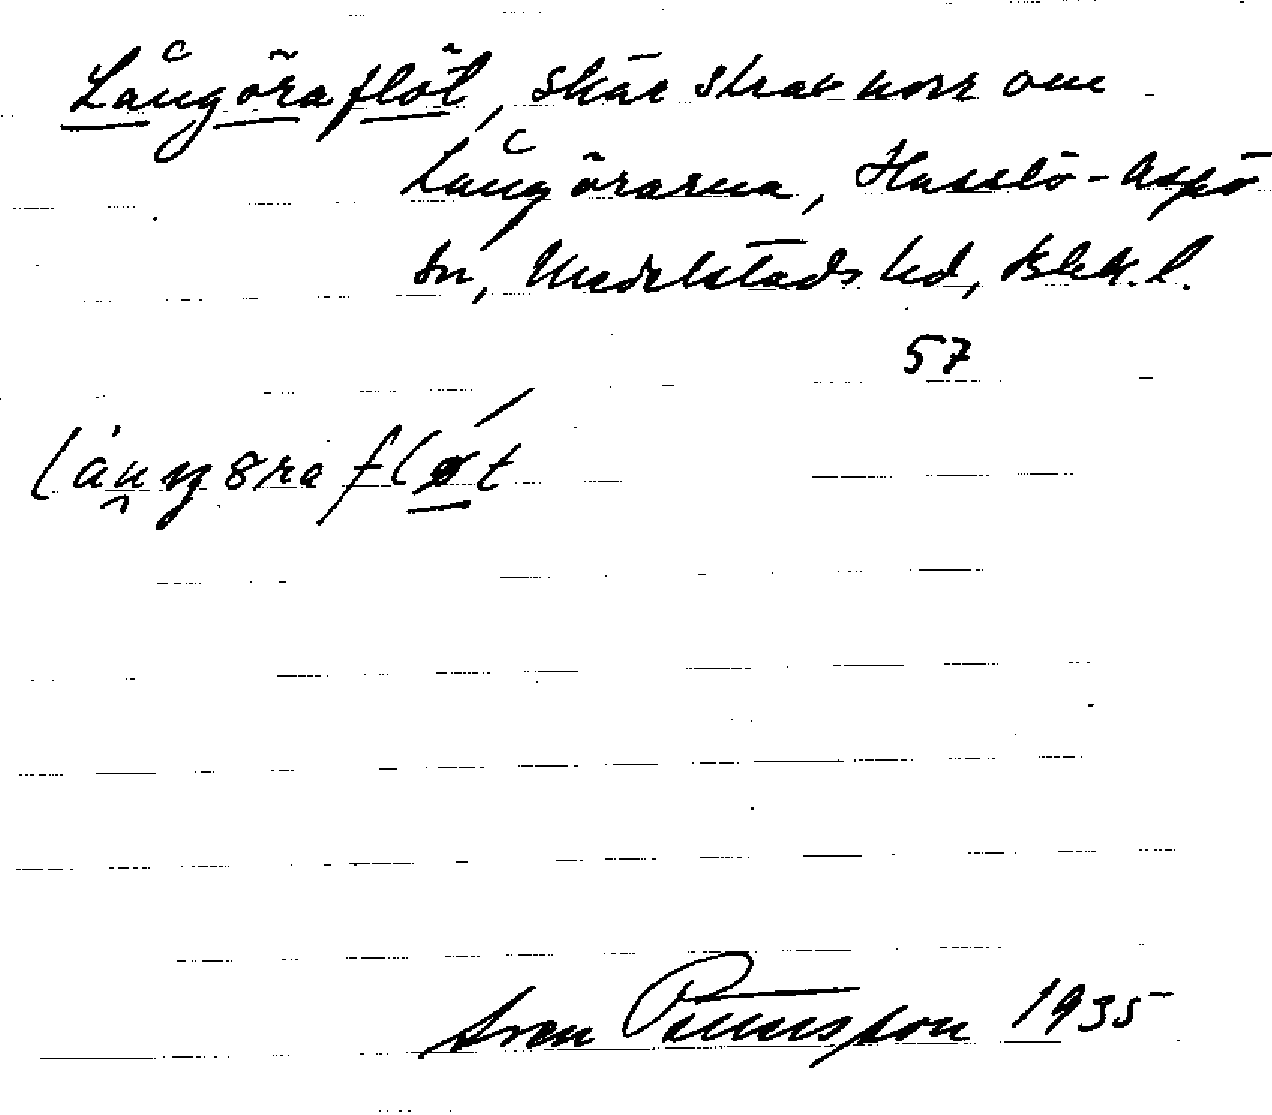 Långöraflöt, skär strax norr om
Långörarna, Hasslö-Aspö
sn, Medelstads hd, Blek. l.
57
långöraflöt
Sven Benson 1935